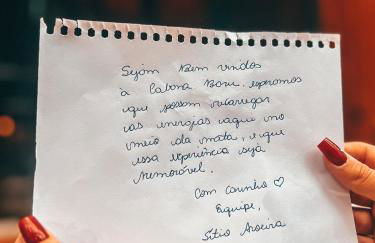 Sejam Bem vindos
à Cabana Boru. esperamos
que possam recarregar
as energias aqui no
meio da mata, e que
essa experiência seja
memorável.
Com carinho ♡
Equipe,
Sítio Aroeira